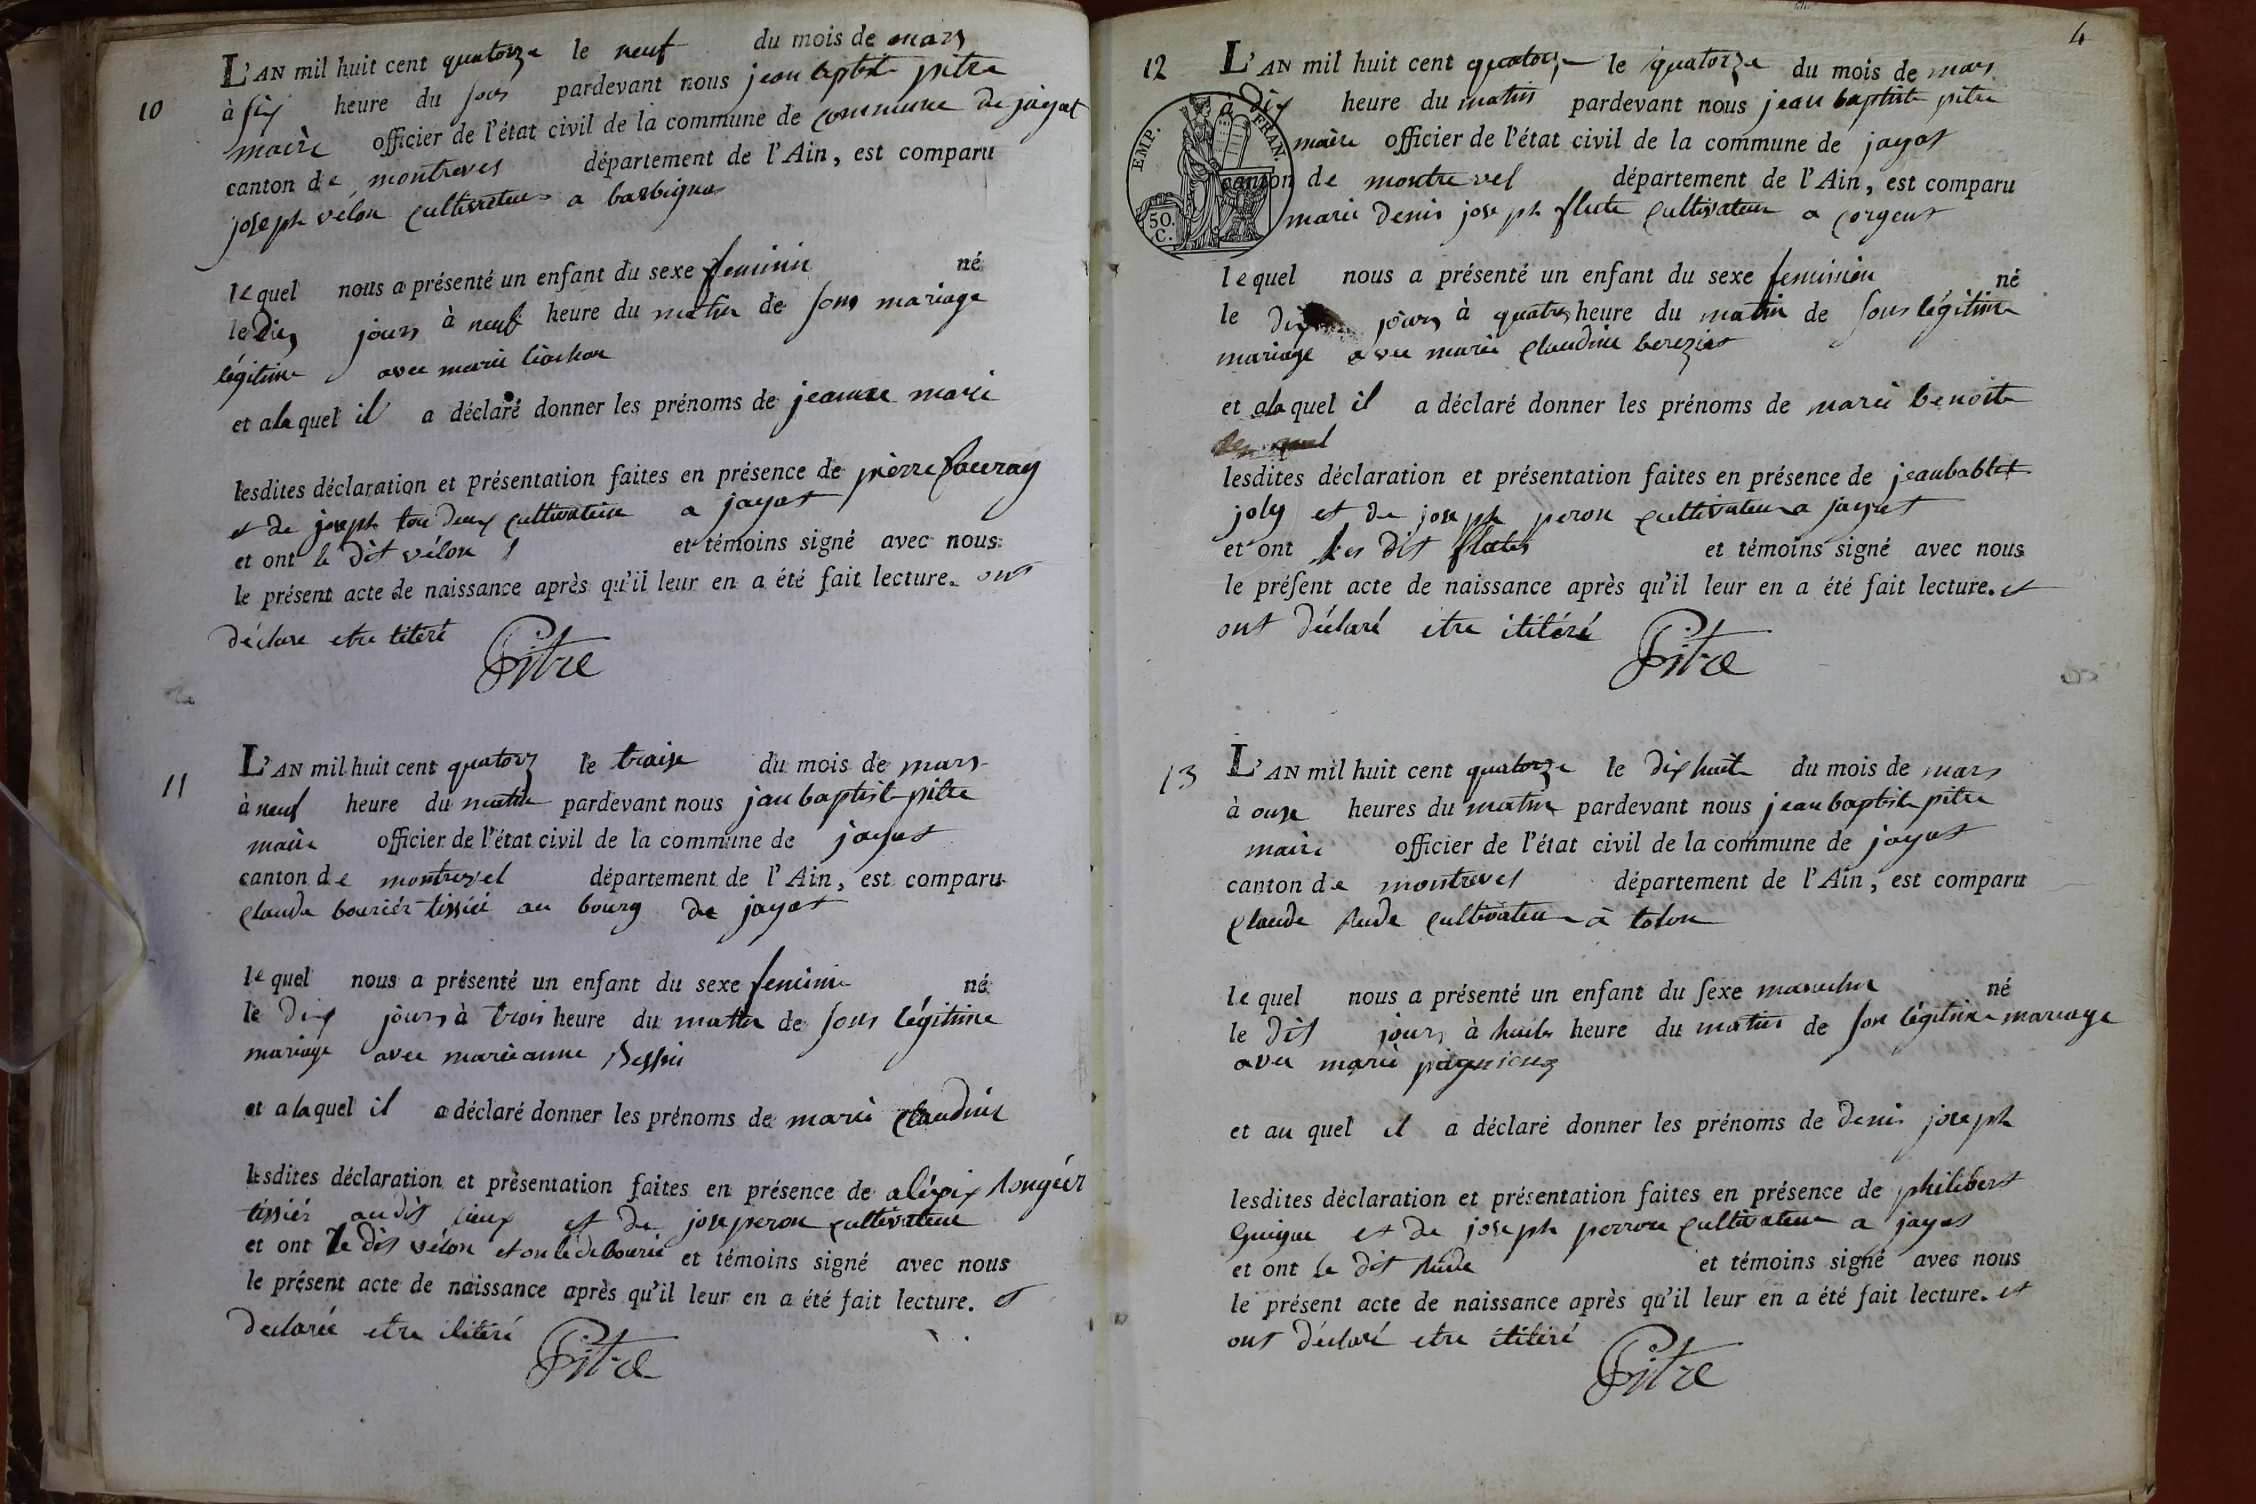 10
L'AN mil huit cent quatorze le neuf du mois de mars
à six heure du soir pardevant nous jean baptiste pitre
maire officier de l'état civil de la commune de commune de jayat
canton de montrevel département de l'Ain, est comparu
joseph vélon cultivateur a
lequel nous a présenté un enfant du sexe feminin né
le dis jours à neuf heure du matin de sons mariage
légitime avec marie
et alaquel il a déclaré donner les prénoms de jeanne marie
lesdites déclaration et présentation faites en présence de pierre
et de joseph tou deux cultivateur a jayat
et ont le dit vélon et témoins signé avec nous
le présent acte de naissance après qu'il leur en a été fait lecture. ont
déclare etre
Pitre
11
L'AN mil huit cent quatorz le traise du mois de mars
à neuf heure du matin pardevant nous jan baptiste pitre
maire officier de l'état civil de la commune de jayat
canton de montrevel département de l'Ain, est comparu
claude bouriér tissié au bourg de jayat
lequel nous a présenté un enfant du sexe feminin né
le dix jours à trois heure du matin de sons légitime
mariage avec marie anne
et alaquel il a déclaré donner les prénoms de marie claudine
lesdites déclaration et présentation faites en présence de
tissiér audit lieux et de jose peron cultivateur
et ont le dit vélon et témoins signé avec nous
le présent acte de naissance après qu'il leur en a été fait lecture. et
declaré etre ilitéré
Pitre
4
12
L'AN mil huit cent quatorze le quatorze du mois de mars
à dix heure du matin pardevant nous jean baptiste pitre
maire officier de l'état civil de la commune de jayat
canton de montrevel département de l'Ain, est comparu
marie denis joseph flute cultivateur a corgent
EMP. FRAN.
50. C.
lequel nous a présenté un enfant du sexe feminien né
le dix jours à quatres heure du matin de sons légitime
mariage avec marie claudine
et alaquel il a déclaré donner les prénoms de marie benoite
lesdites déclaration et présentation faites en présence de
joly et de joseph peron cultivateur a jayat
et ont les dit et témoins signé avec nous
le présent acte de naissance après qu'il leur en a été fait lecture. et
ont déclaré etre ilitéré
Pitre
13
L'AN mil huit cent quatorze le dix huite du mois de mars
à onze heures du matin pardevant nous jean baptiste pitre
maire officier de l'état civil de la commune de jayat
canton de montrevel département de l'Ain, est comparu
claude cultivateur à
lequel nous a présenté un enfant du sexe né
le dit jours à huits heure du matin de son légitime mariage
avec marie
et au quel il a déclaré donner les prénoms de denis joseph
lesdites déclaration et présentation faites en présence de philibert
et de joseph perron cultivateur a jayat
et ont le dit et témoins signé avec nous
le présent acte de naissance après qu'il leur en a été fait lecture. et
ont déclaré etre ilitéré
Pitre